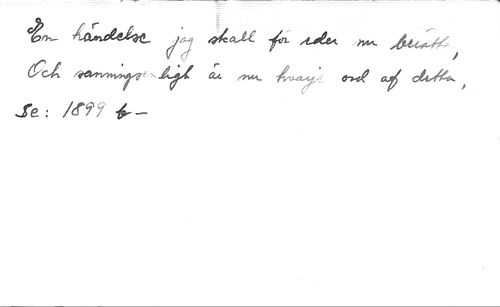 En händelse jag skall för eder nu berätta,
Och sanningsenligt är nu hvarje ord af detta,
Se: 1899 b –